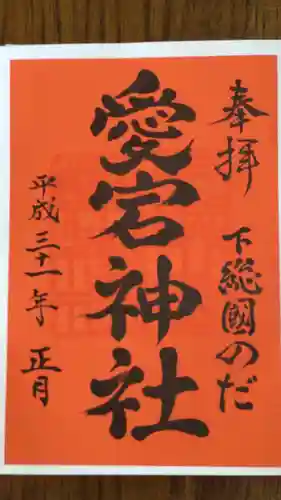 奉拝
下総國のだ
愛宕神社
平成三十一年
正月